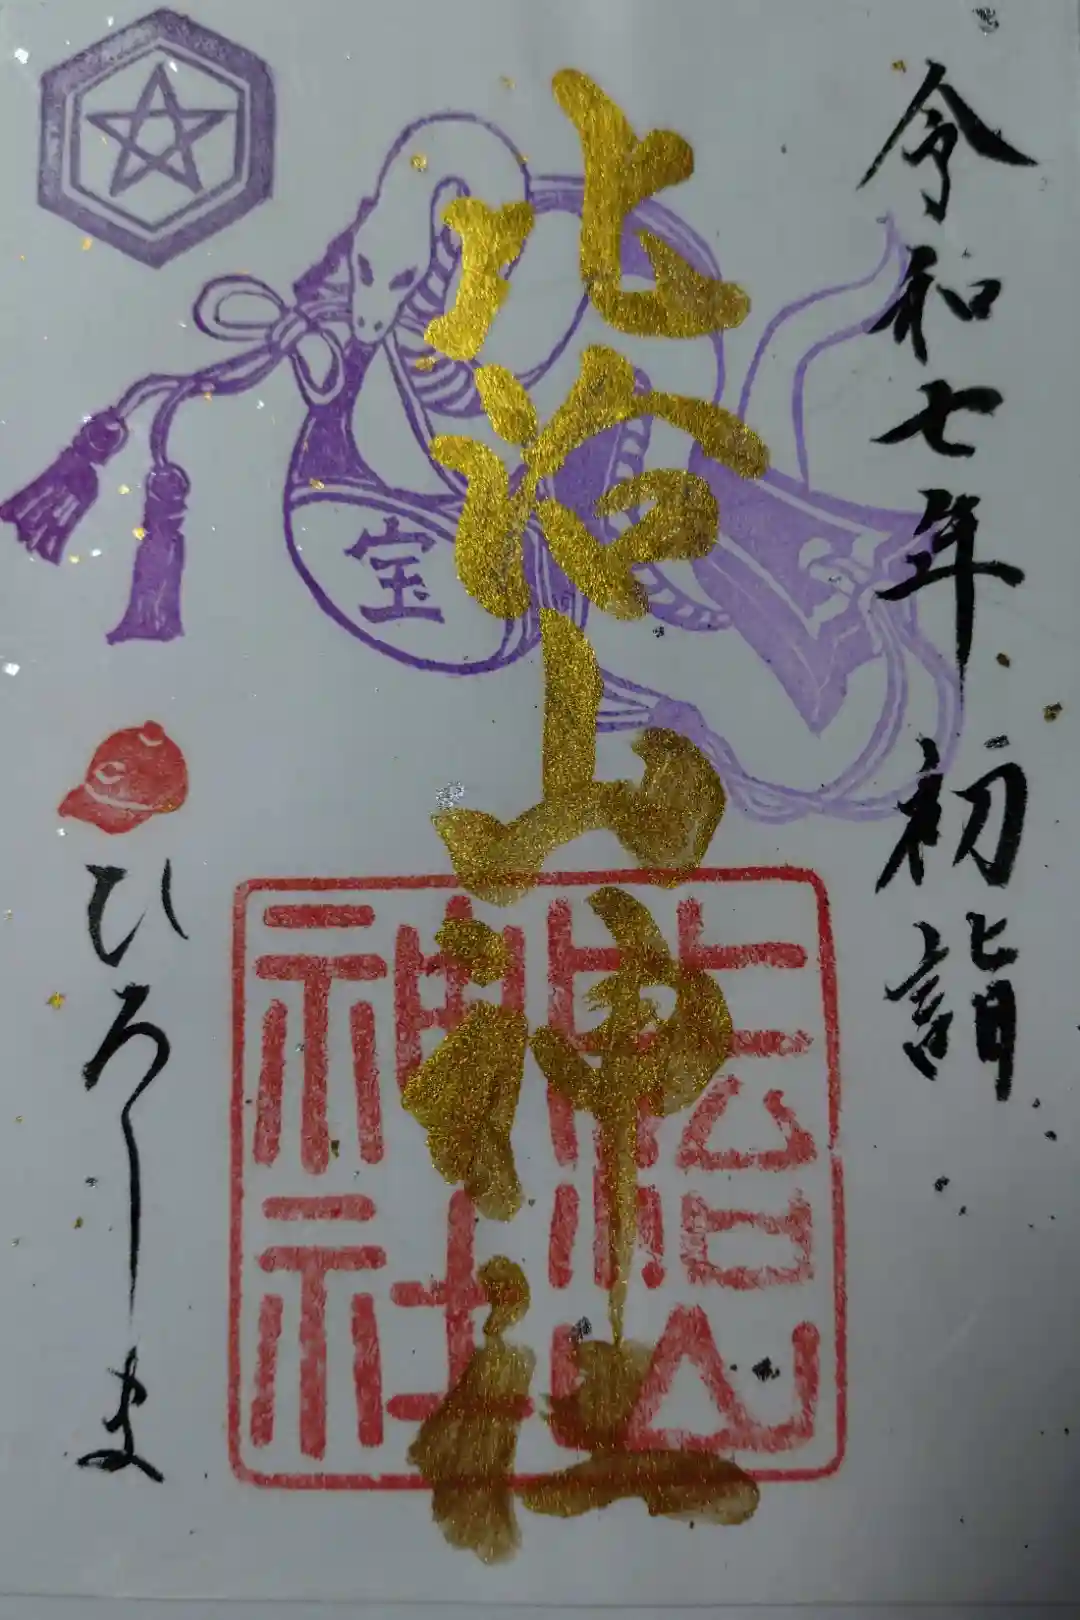 令和七年 初詣
比治山神社
宝
比治山神社
ひろしま